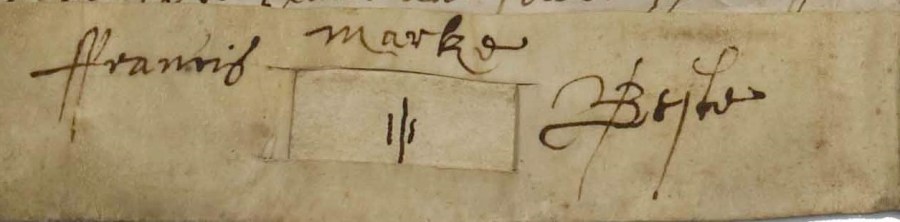 ffrancis marke Beste